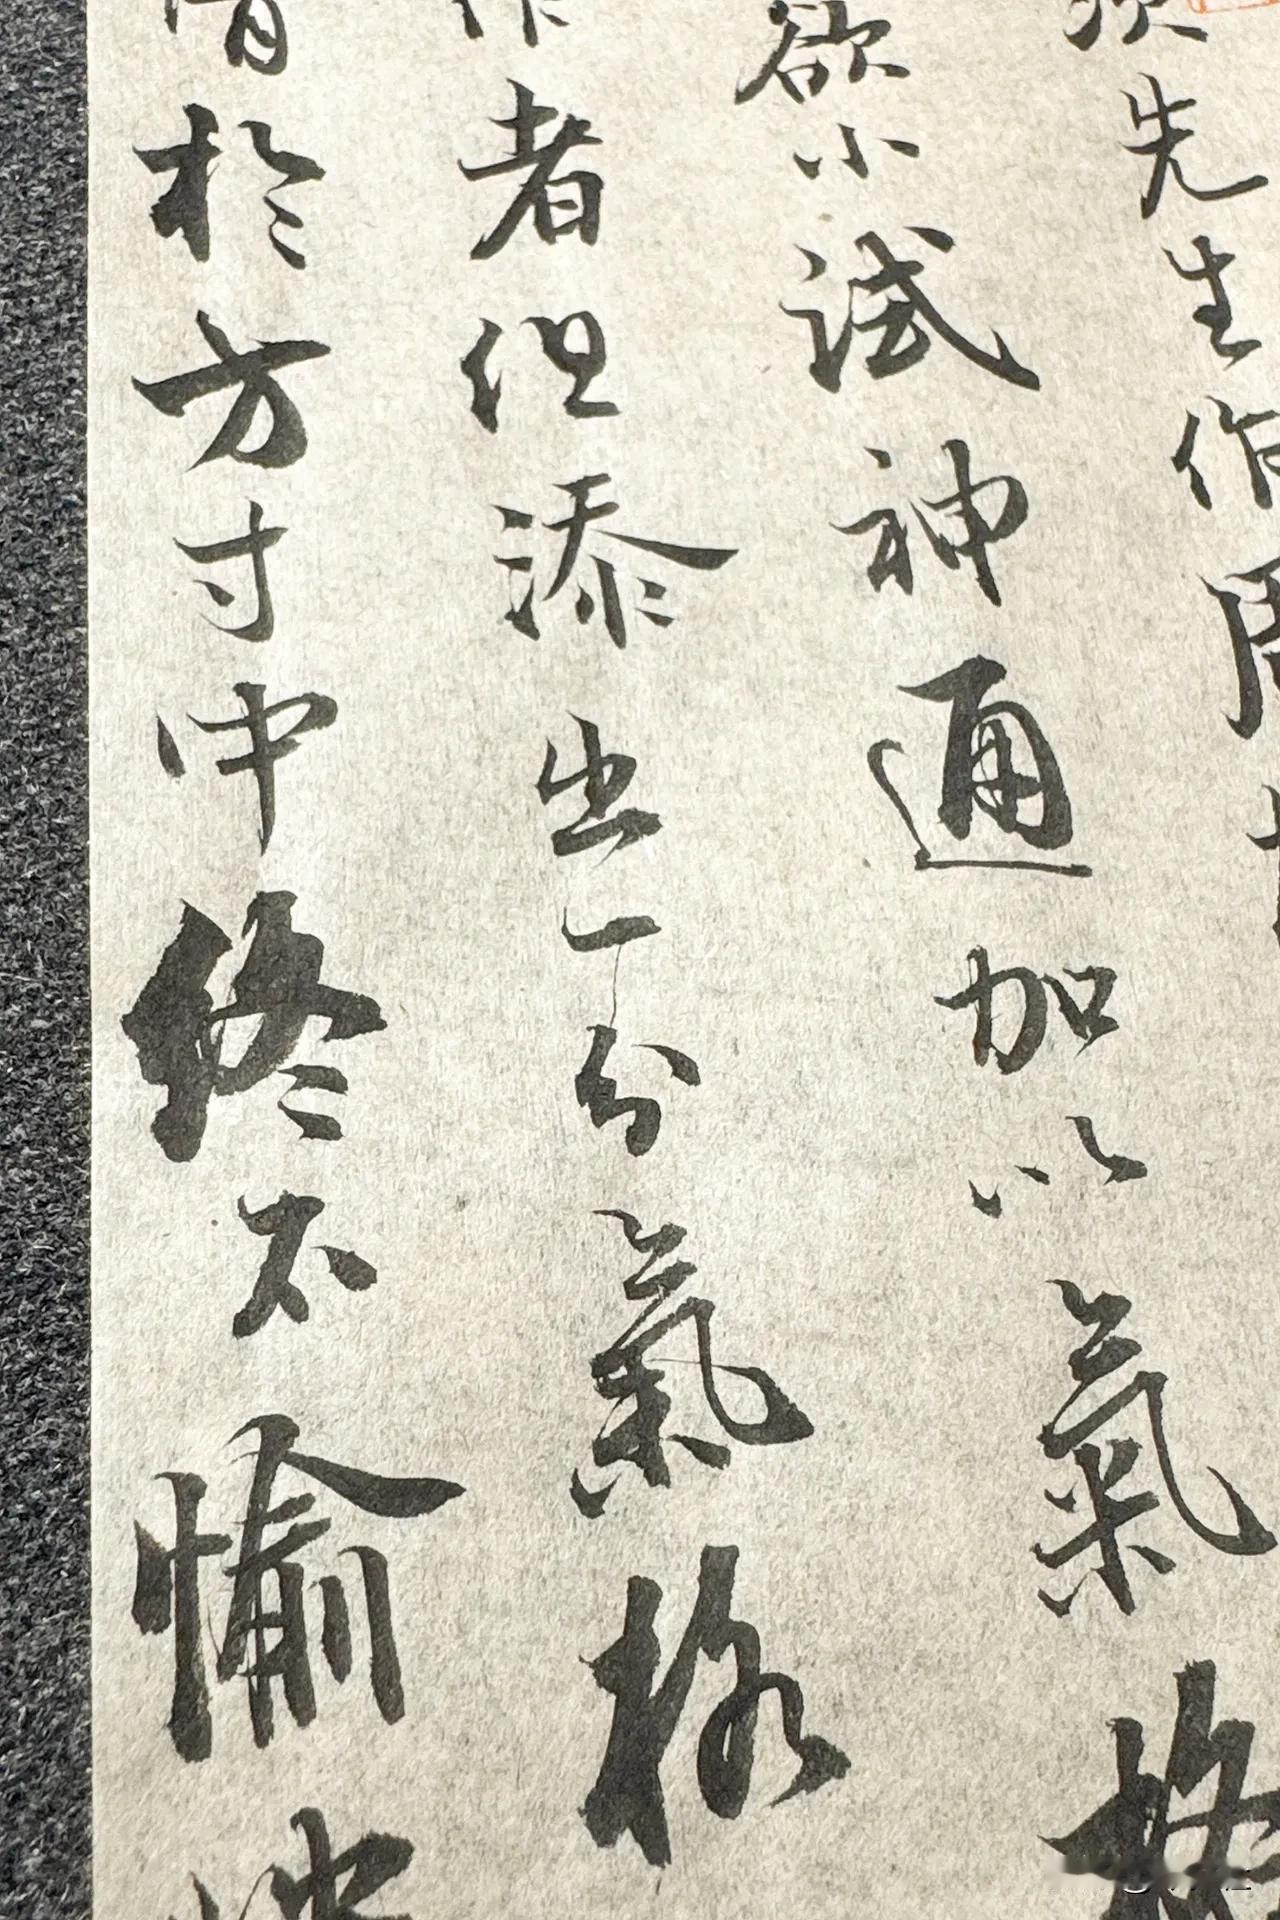 先生作周
欲小試神通加以氣格
者但添出一分氣格
於方寸中終不愉